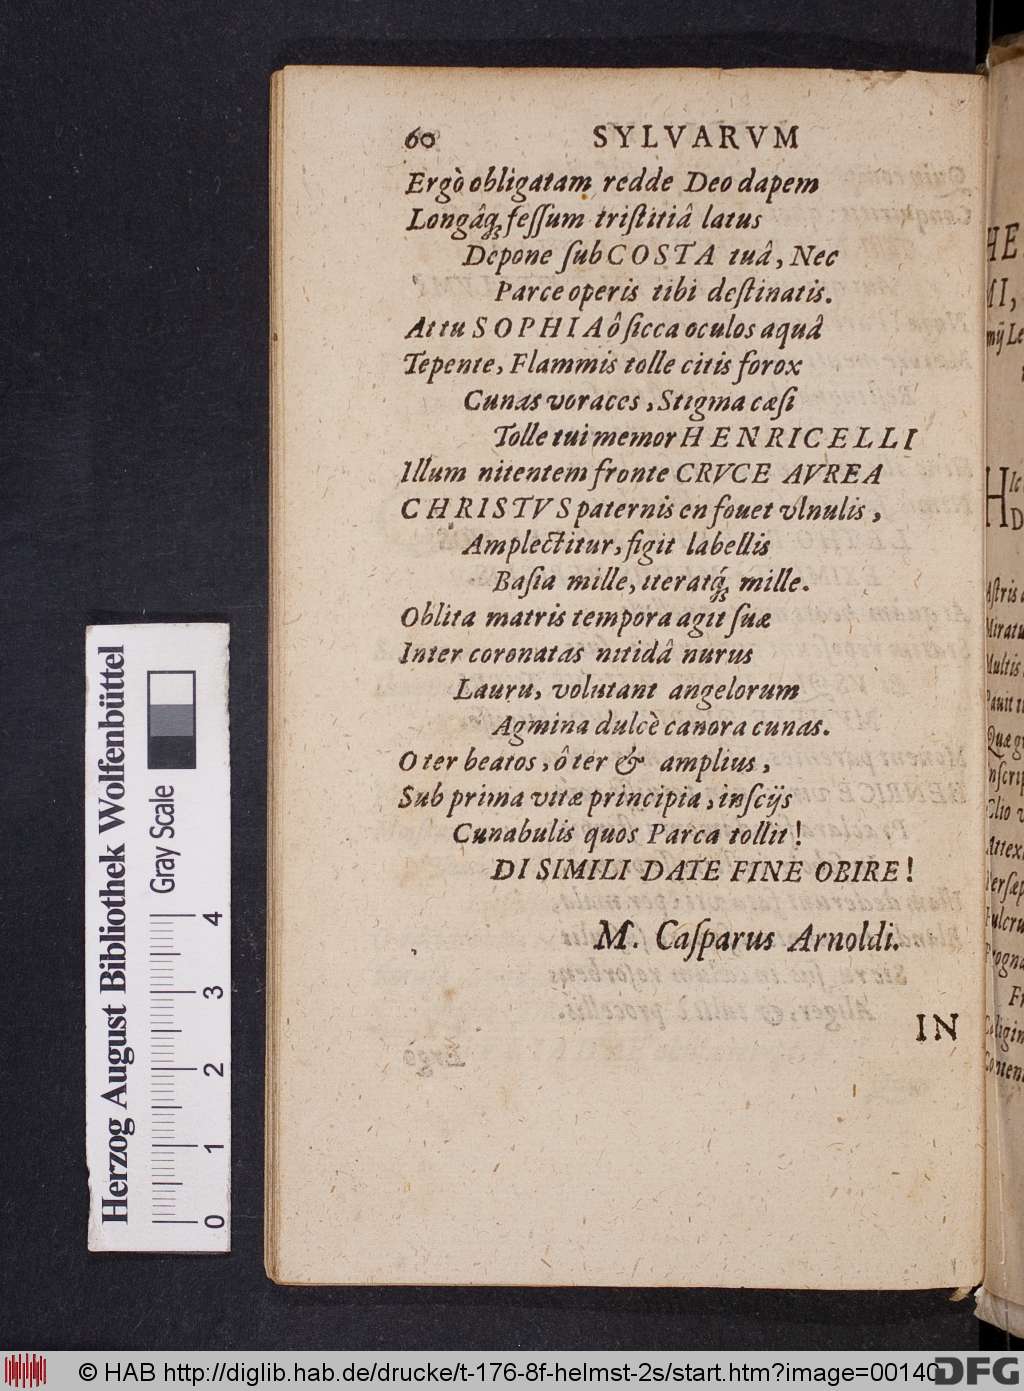 60 SYLVARVM
Ergò obligatam redde Deo dapem
Longâq; feſſum triſtitiâ latus
Depone ſub COSTA tuâ, Nec
Parce operis tibi deſtinatis.
At tu SOPHIA ô ſicca oculos aquâ
Tepente, Flammis tolle citis forox
Cunas voraces, Stigma cæſi
Tolle tui memor HENRICELLI
Illum nitentem fronte CRVCE AVREA
CHRISTVS paternis en fouet vlnulis,
Amplectitur, figit labellis
Baſia mille, iteratq́; mille.
Oblita matris tempora agit ſuæ
Inter coronatas nitidâ nurus
Lauru, volutant angelorum
Agmina dulcè canora cunas.
O ter beatos, ô ter & amplius,
Sub prima vitæ principia, inſcijs
Cunabulis quos Parca tollit!
DI SIMILI DATE FINE OBIRE!
M. Caſparus Arnoldi.
IN
Herzog August Bibliothek Wolfenbüttel
Gray Scale
0 1 2 3 4
© HAB http://diglib.hab.de/drucke/t-176-8f-helmst-2s/start.htm?image=00140
DFG